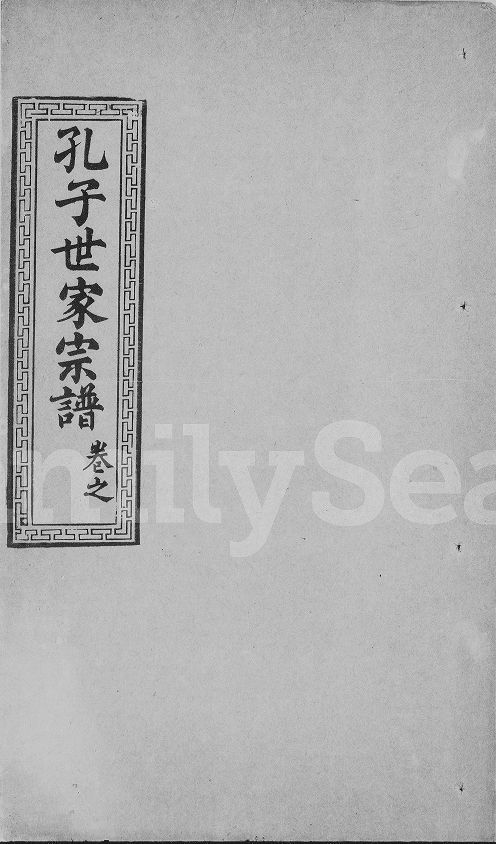 孔子世家宗譜
卷之
milySea